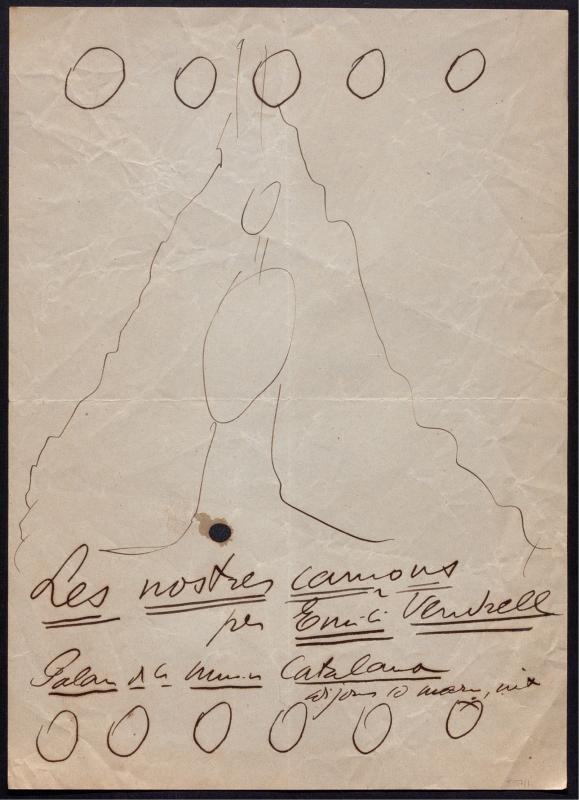 Les nostres cançons
per Emili Vendrell
Palau de la Música Catalana
dijous 10 març, nit